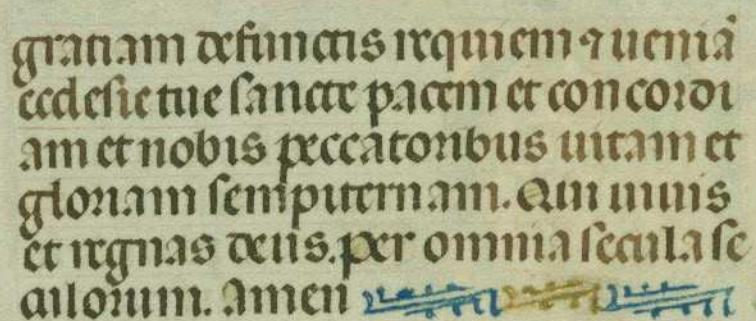 gratiam defunctis requiem ⁊ueniā
ecclesie tue sancte pacem et concordi
am et nobis peccatoribus uitam et
gloriam sempiternam. Qui uiuis
et regnas deus. per omnia secula se
culorum. Amen